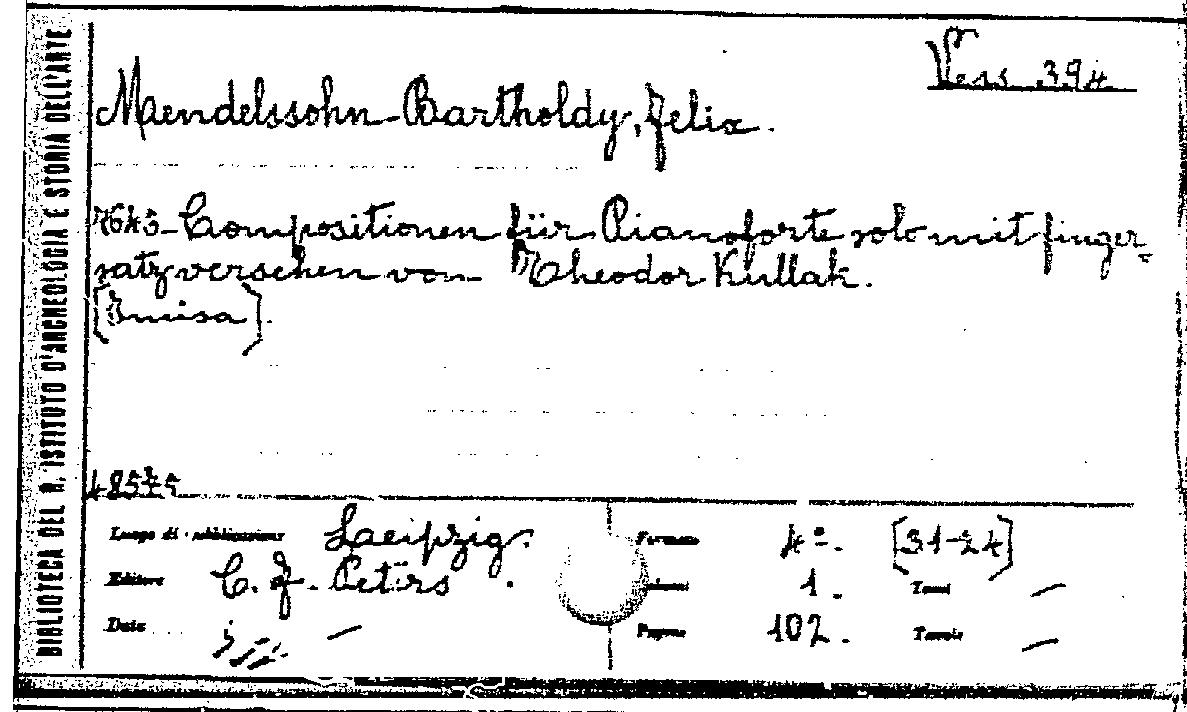 BIBLIOTECA DEL R. ISTITUTO D'ARCHEOLOGIA E STORIA DELL'ARTE
Vess. 394
Maendelssohn-Bartholdy, Felix.
Compositionen für Pianoforte solo mit finger
satz versehen von Theodor Kullak.
[Musica].
Luogo di pubblicazione Laeipzig.
Editore C. F. Peters.
Data —
Formato 4º. [31-24]
Volumi 1. Tomi —
Pagine 102. Tavole —